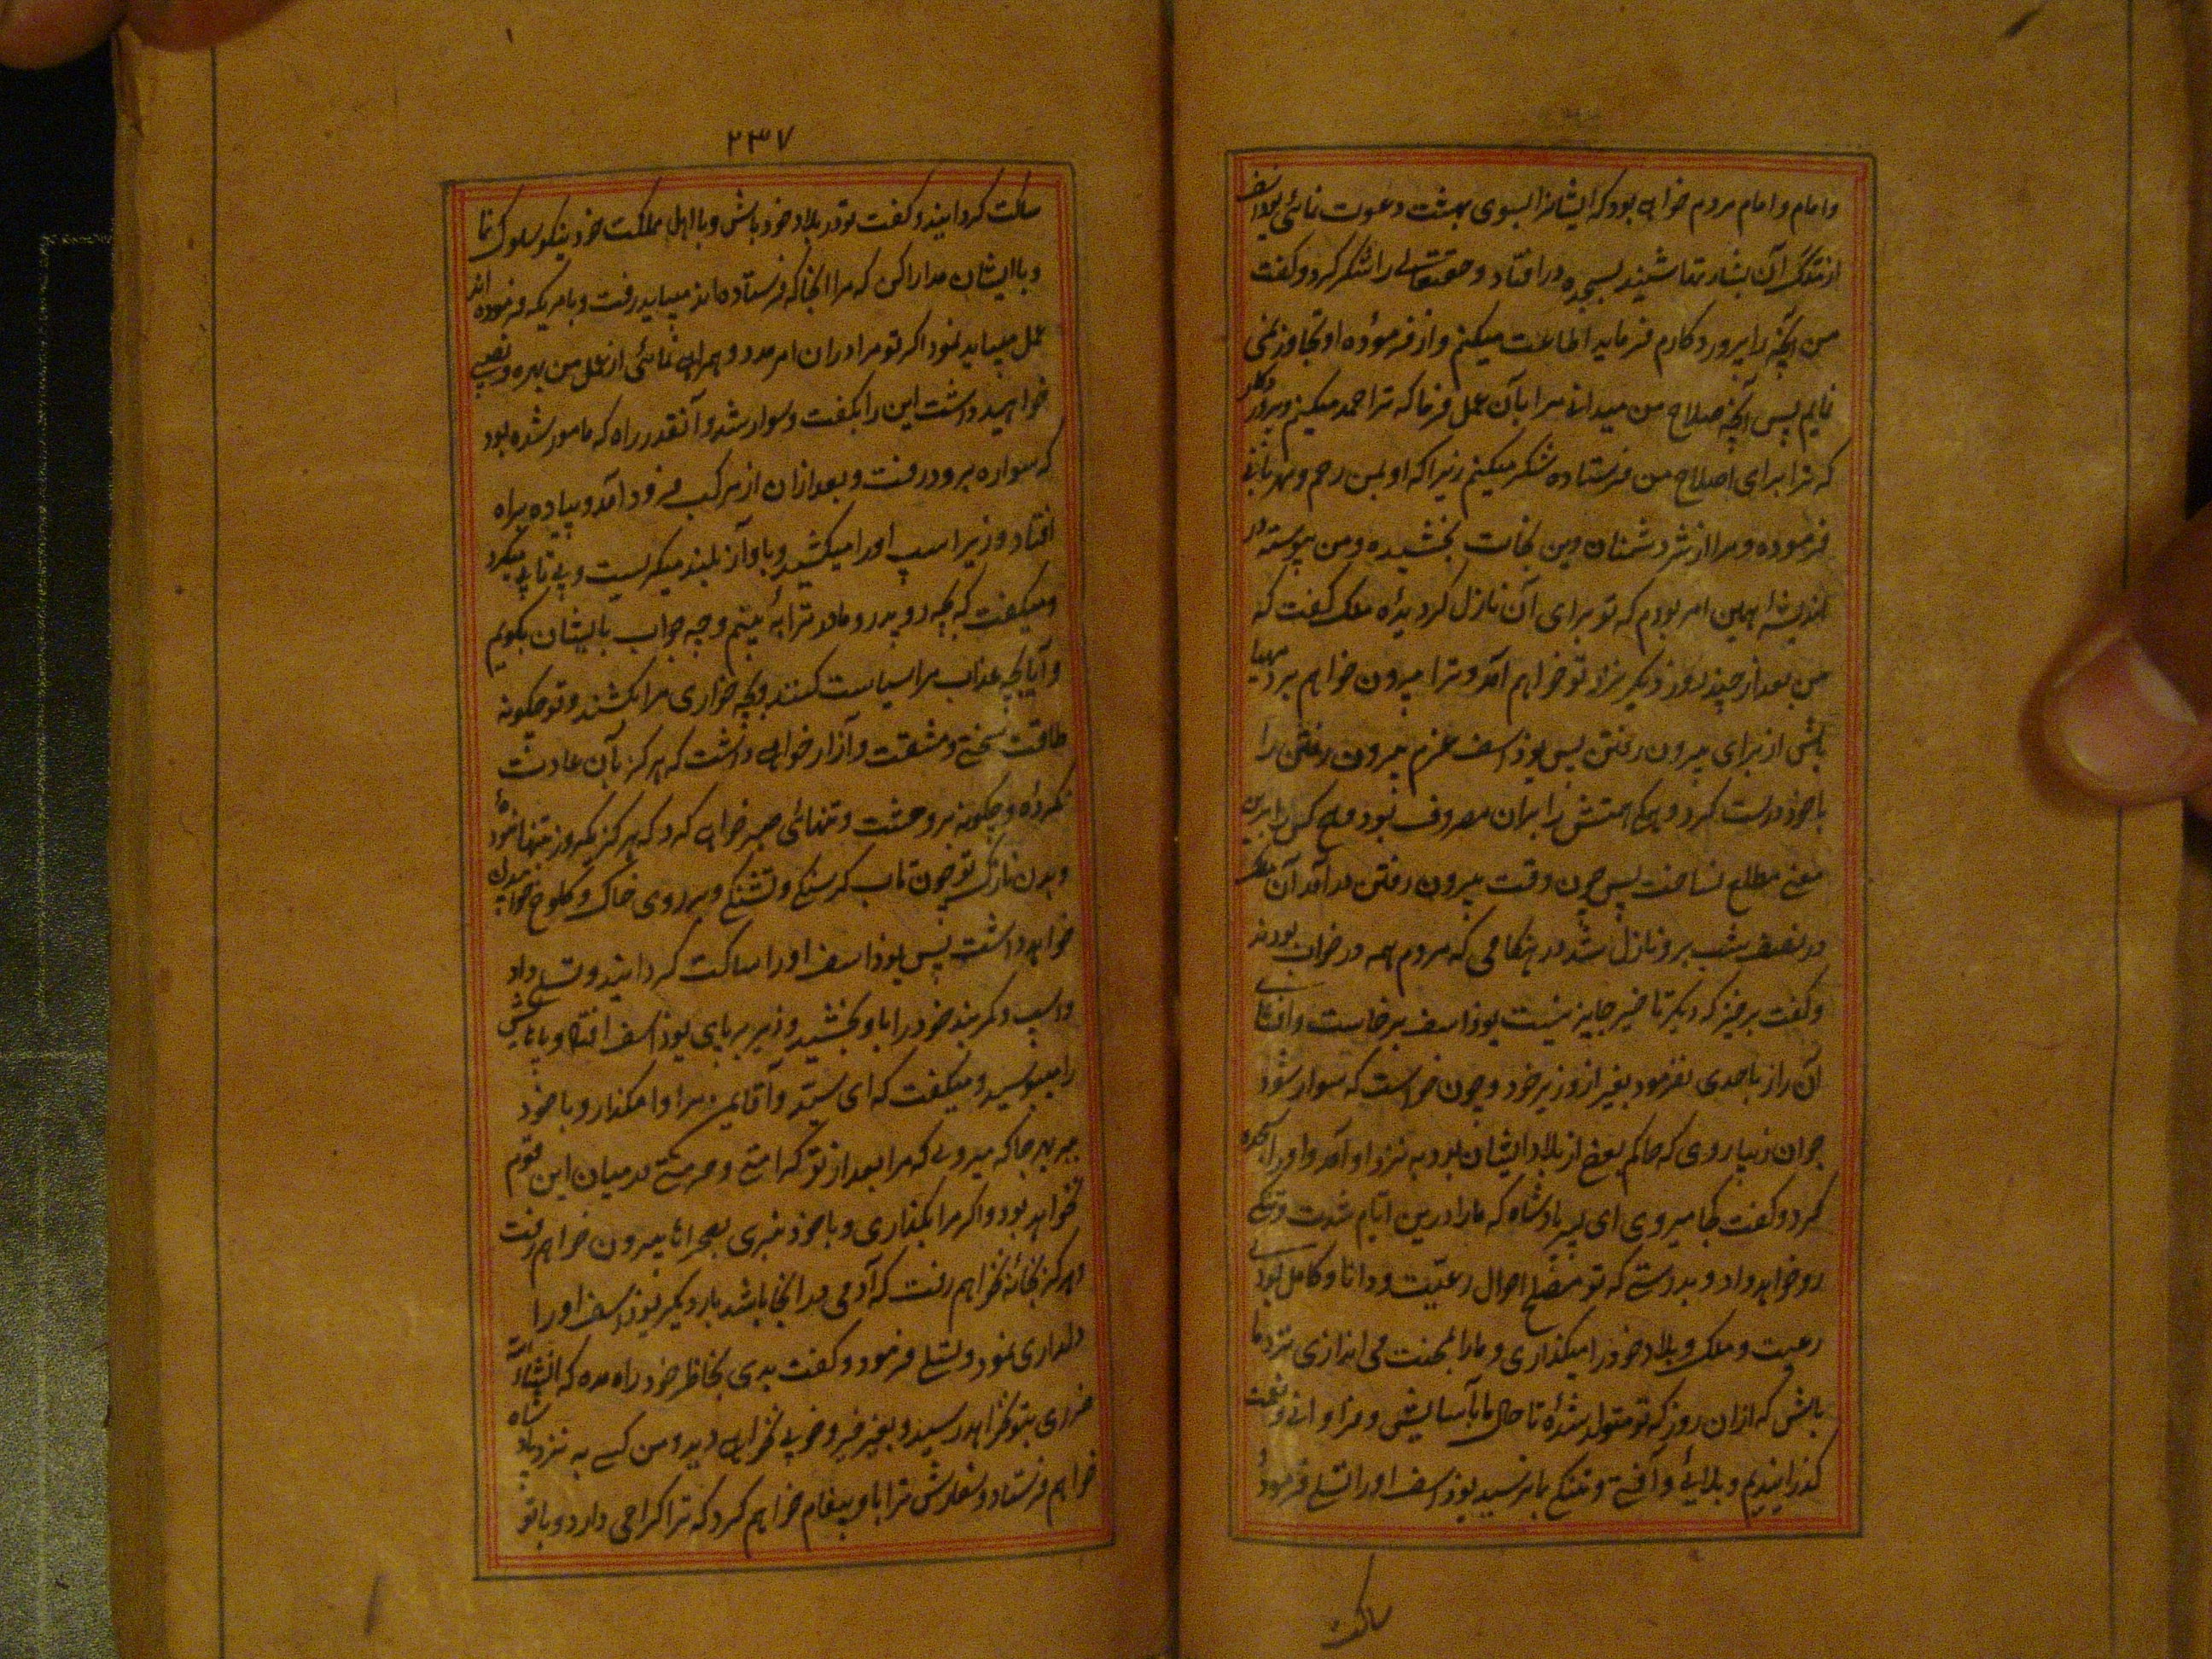 و امام و امام مردم خواهی بود که ایشانرا بسوی بهشت دعوت نمائی یوذاسف
آن بشارتها شنید بسجده در افتاد و حقتعالی را شکر کرد و گفت
من آنچه را پروردگارم فرماید اطاعت میکنم و از فرموده او تجاوز نمی
نمایم پس آنچه صلاح من میدانی مرا بآن عمل فرما که ترا حمد میکنم و پروردگار
که ترا برای اصلاح من فرستاده شکر میکنم زیرا که او بمن رحم و مهربانی
فرموده و مرا از شر دشمنان دین نجات بخشیده و من پیوسته در
اندیشه همین امر بودم که تو برای آن نازل گردیدهٔ ملک گفت که
من بعد از چند روز دیگر نزد تو خواهم آمد و ترا بیرون خواهم برد مهیا
باش از برای بیرون رفتن پس یوذاسف عزم بیرون رفتن را
با خود درست کرد و همگی همتش را بران مصروف نمود و هیچ کس را برین
معنی مطلع نساخت پس چون وقت بیرون رفتن در آمد آن ملک
در نصف شب برو نازل شد در هنگامی که مردم همه در خواب بودند
و گفت برخیز که دیگر تاخیر جایز نیست یوذاسف برخاست و افشای
آن راز باحدی نفرمود بغیر از وزیر خود و چون خواست که سوار شود
جوان زیبا روی که حاکم بعضی از بلاد ایشان بود به نزد او آمد و او را سجده
کرد و گفت کجا میروی ای پسر پادشاه که ما را درین ایام شدت و تنگی
رو خواهد داد و بدرستی که تو مصلح احوال رعیت و دانا و کامل بودی
رعیت و ملک و بلاد خود را میگذاری و ما را بمحنت می اندازی نزد ما
باش که ازان روز که تو متولد شدهٔ تا حال ما بآسایش و فراوانی و نعمت
گذرانیدیم و بلائی و آفتی و تنگی بما نرسید یوذاسف او را تسلی فرموده
ساکت
۲۳۷
ساکت گردانید و گفت تو در بلاد خود باش و با اهل مملکت خود نیکو سلوک نما
و با ایشان مدارا کن که مرا انجا که فرستاده اند میباید رفت و بامریکه فرموده اند
عمل میباید نمود اگر تو مرا دران امر مدد و همراهی نمائی از عمل من بهره و نصیبی
خواهید داشت این را بگفت و سوار شد و آنقدر راه که مامور شده بود
که سواره برود رفت و بعد ازان از مرکب فرود آمد و پیاده براه
افتاد و وزیر اسپ او را میکشید و باواز بلند میگریست و بی تابی میکرد
و میگفت که بچه رو پدر و مادر ترا به بینم و چه جواب بایشان بگویم
و آیا بچه عذاب مرا سیاست کنند و بچه خواری مرا بکشند و تو چگونه
طاقت سختی و مشقت و آزار خواهی داشت که هرگز بآن عادت
نکردهٔ و چگونه بر وحشت و تنهائی صبر خواهی کرد که هرگز یکروز تنها نبودهٔ
و بدن نازک تو چون تاب گرسنگی و تشنگی و بر روی خاک و کلوخ خوابیدن
خواهد داشت پس یوذاسف او را ساکت گردانید و تسلی داد
و اسپ و کمربند خود را باو بخشید وزیر بر پای یوذاسف افتاد و پایش
را میبوسید و میگفت که ای سید و آقای من مرا وا مگذار و با خود
ببر بهر جا که میروی که مرا بعد از تو کرامتی و حرمتی در میان این قوم
نخواهد بود و اگر مرا بگذاری و با خود نبری بصحراها بیرون خواهم رفت
و هرگز بخانهٔ نخواهم رفت که آدمی در انجا باشد بار دیگر یوذاسف او را
دلداری نمود و تسلی فرمود و گفت بدی بخاطر خود راه مده که انشاءالله
ضرری بتو نخواهد رسید و بغیر خیر و خوبی نخواهی دید و من کسی به نزد پادشاه
خواهم فرستاد و سفارش ترا باو پیغام خواهم کرد که ترا گرامی دارد و با تو